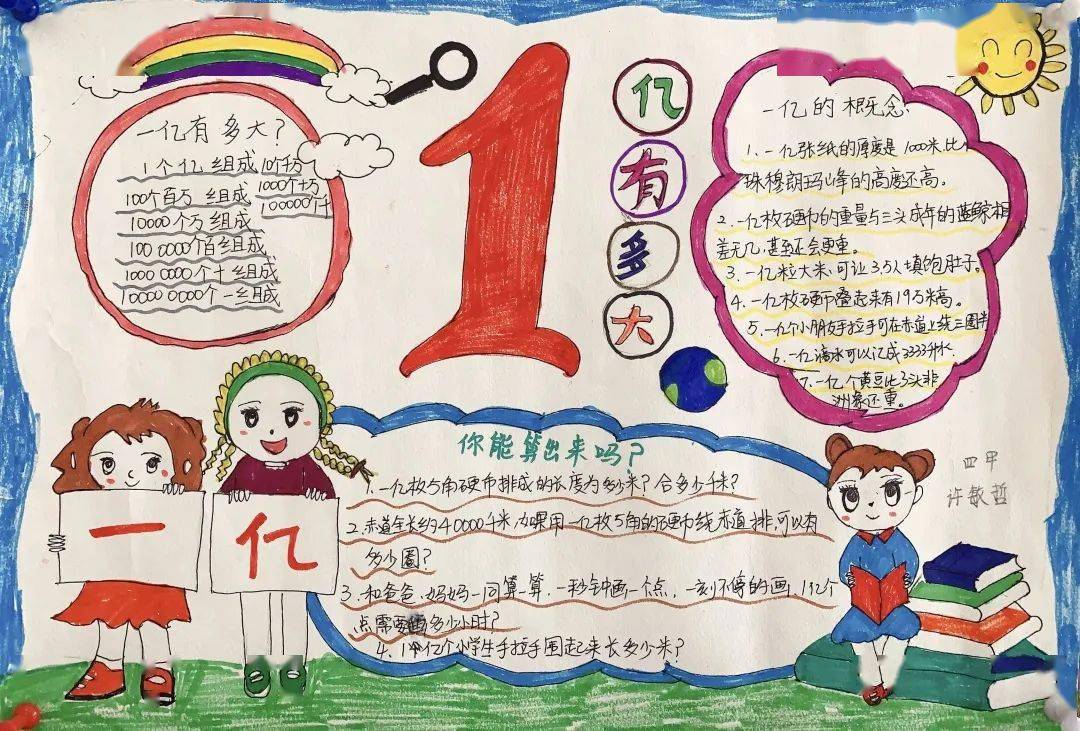 1
亿
有
多
大
一亿有多大?
1个亿组成10个千万
100个百万组成 1000个十万
10000个万组成 100000个千
1000000个百组成
10000000个十组成
100000000个一组成
一亿的概念:
1、一亿张纸的厚度是1000米比
珠穆朗玛峰的高度还高。
2、一亿枚硬币的重量与三头成年的蓝鲸相
差无几,甚至还会更重。
3、一亿粒大米,可让3.5人填饱肚子。
4、一亿枚硬币叠起来有19万米高。
5、一亿个小朋友手拉手可在赤道上绕三圈半
6、一亿滴水可以汇成3333升水
7、一亿个黄豆比3头非
洲象还重。
一
亿
你能算出来吗?
1、一亿枚5角硬币排成的长度为多少米?合多少千米?
2、赤道全长约40000千米,如果用一亿枚5角的硬币线赤道排,可以有
多少圈?
3、和爸爸、妈妈一同算一算,一秒钟画一个点,一刻不停的画,1亿个
点需要多少小时?
4、1亿个小学生手拉手围起来长多少米?
四甲
许敏哲